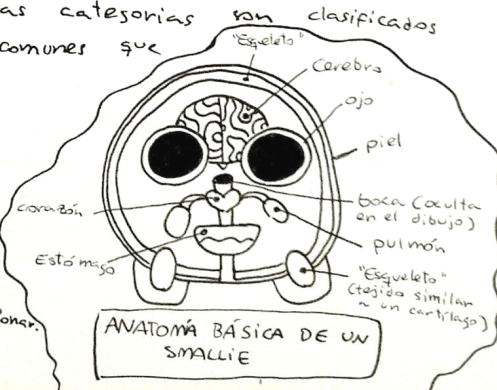 as categorias son clasificados
comunes que
"Esqueleto"
Cerebro
ojo
piel
boca (oculta
en el dibujo)
corazón
pulmón
Estómago
"Esqueleto"
(tejido similar
a un cartílago)
onar.
ANATOMÍA BÁSICA DE UN
SMALLIE